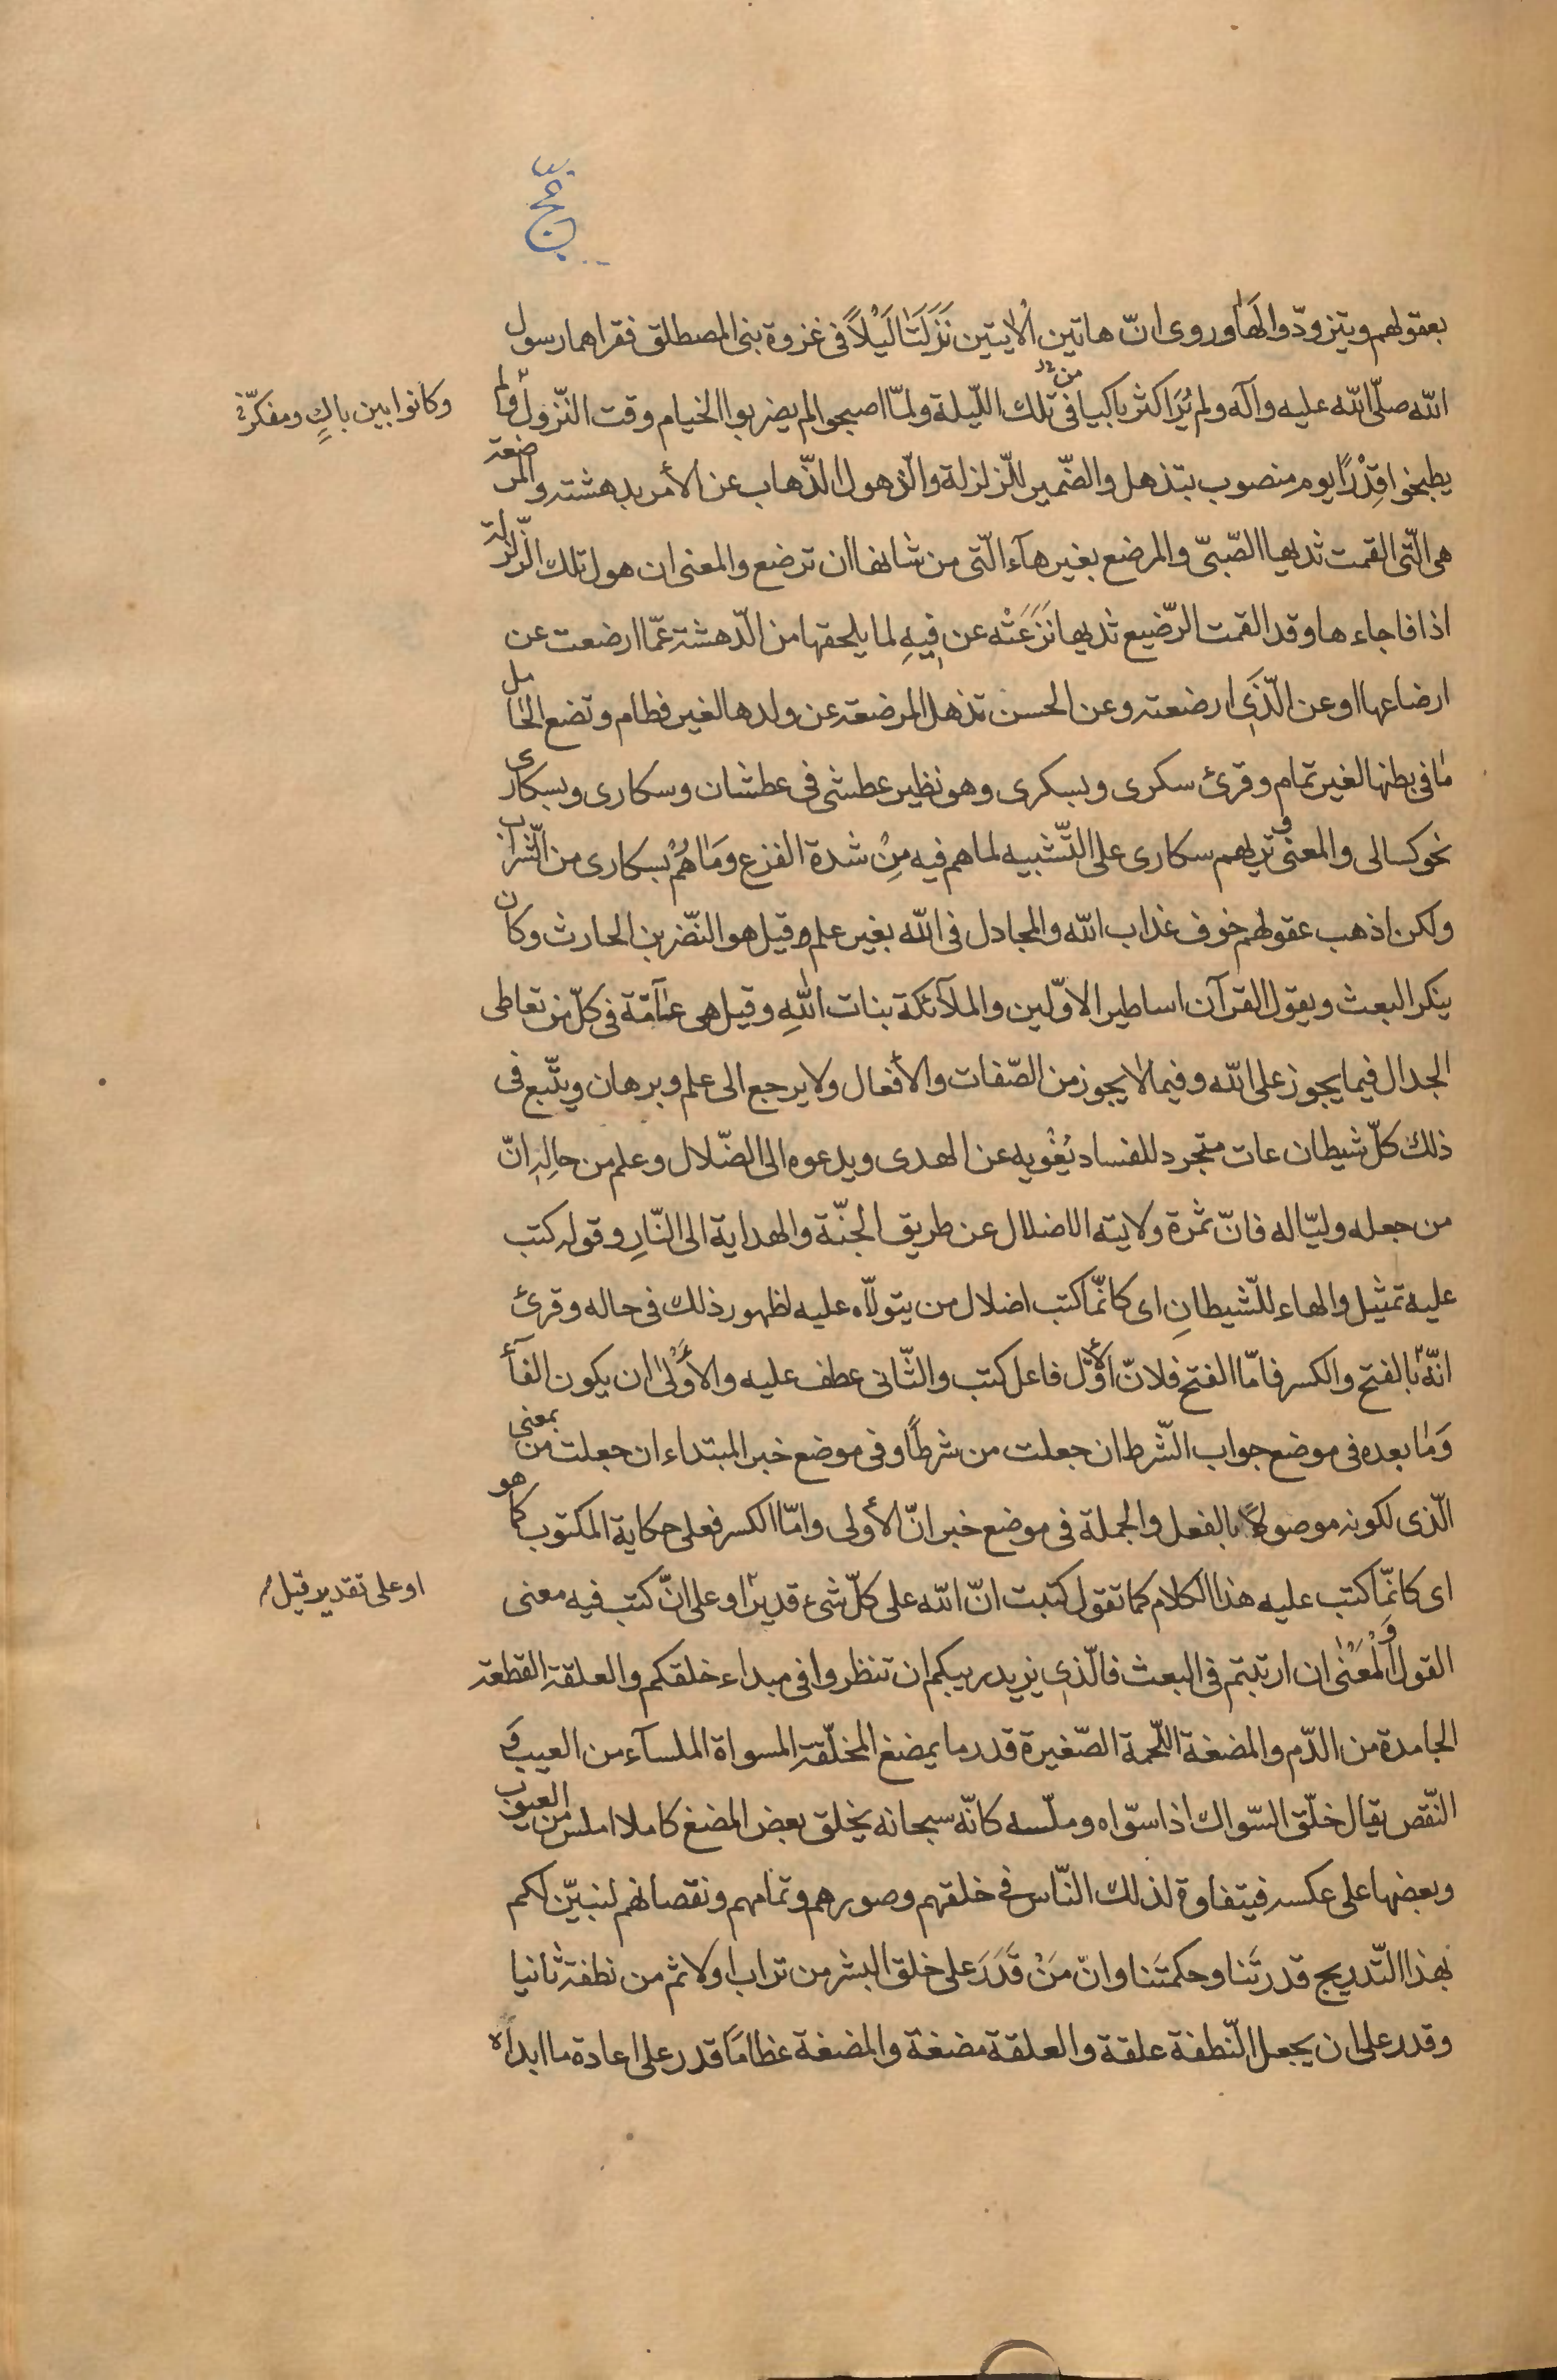 حج
بعقولهم ويتزودّوا لَهٰا وروى انّ هاتين الْاٰيتين نَزَلَتٰا لَيْلاً فى غزوة بنى المصطلق فقراهما رسول
الله صلّى الله عليه وآله ولم يُرَ اكثر باكيا من فى تلك اللّيلة ولمّا اصبحوا لم يضربوا الخيام وقت النّزول ولم
وكانوا بين باكٍ ومفكّر
يطبخوا قِدْرًا يوم منصوب بتذهل والضّمير للّزلزلة والّذهول الذّهاب عن الأمر بدهشته والمرضعة
هى الّتى القمت ثديها الصّبىّ والمرضع بغير هآء الّتى من شانها ان ترضع والمعنى ان هول تلك الزّلزلة
اذا فاجاءها وقد القمت الرّضيع ثديها نَزَعَتْه عن فيهِ لما يلحقها من الدّهشة عمّا ارضعت عن
ارضاعها او عن الّذى ارضعته وعن الحسن تذهل المرضعة عن ولدها لغير فطام وتضع الحٰامل
مٰا فى بطنها لغير تمام وقرئ سكرى وبسكرى وهو نظير عطشى فى عطشان وسكارى وبسكارى
نحو كسالى والمعنى وتريهم سكارى على التّشبيه لما هم فيه مِنْ شدة الفزع وَمٰا هُمْ بسكارى من الشّراب
ولكن اذهب عقولهم خوف عذاب الله والمجادل فى الله بغير علم وقيل هو النّضر بن الحارث وكان
ينكر البعث ويقول القرآن اساطير الاوّلين والملآئكة بنات اللهِ وقيل هى عٰآمّة فى كلّ من تعاطى
الجدال فيما يجوز على الله وفيما لا يجوز من الصّفات والأفعال ولا يرجع الى علم وبرهان ويتّبع فى
ذلك كلّ شيطان عات متجرد للفساد يُغْويه عن الهدى ويدعوه الى الضّلال وعلم من حالِهِ انّ
من جعله وليّا له فانّ ثمرة ولايته الاضلال عن طريق الجنّة والهداية الى النّارِ وقوله كتب
عليه تمثيل والهاء للّشيطانِ اى كانّما كتب اضلال من يتولّاه عليه لظهور ذلك فى حاله وقرئ
انّهُ بالفتح والكسر فامّا الفتح فلانّ الأوّل فاعل كتب والثّانى عطف عليه والأَوْلىٰ ان يكون الفآء
وَمٰا بعده فى موضع جواب الشّرط ان جعلت من شرطًا وفى موضع خبر المبتداء ان جعلت من بمعنى
الّذى لكونه موصولاً بالفعل والجملة فى موضع خبر انّ الأولى وامّا الكسر فعلى حكاية المكتوب كما هو
اى كانّما كتب عليه هذا الكلام كما تقول كتبت انّ الله على كلّ شىء قديرٌ او على انّ كتب فيه معنى
او على تقدير قيل
القول وَالْمَعْنٰى ان ارتبتم فى البعث فالّذى يزيد ريبكم ان تنظروا فى مبداء خلقكم والعلقة القطعة
الجامدة من الدّم والمضغة اللّحمة الصّغيرة قدر ما يمضغ المخلّقة المسواة الملسآء من العيب وَ
النّقص يقال خلّق السّواك اذا سوّاه وملّسه كانّه سبحانه يخلق بعض المضغ كاملا املس من العيوب
وبعضها على عكسه فيتفاوة لذلك النّاس فى خلقهم وصورهم وتمامهم ونقصانهم لنبيّن لكم
بهذا التّدريج قدرتَنا وحكمتَنا وانّ مَنْ قَدَرَ على خلق البشر من تراب اولا ثم من نطفة ثانيا
وقدر على ان يجعل النّطفة علقة والعلقة مضغة والمضغة عظامًا قدر على اعادة ما ابداه